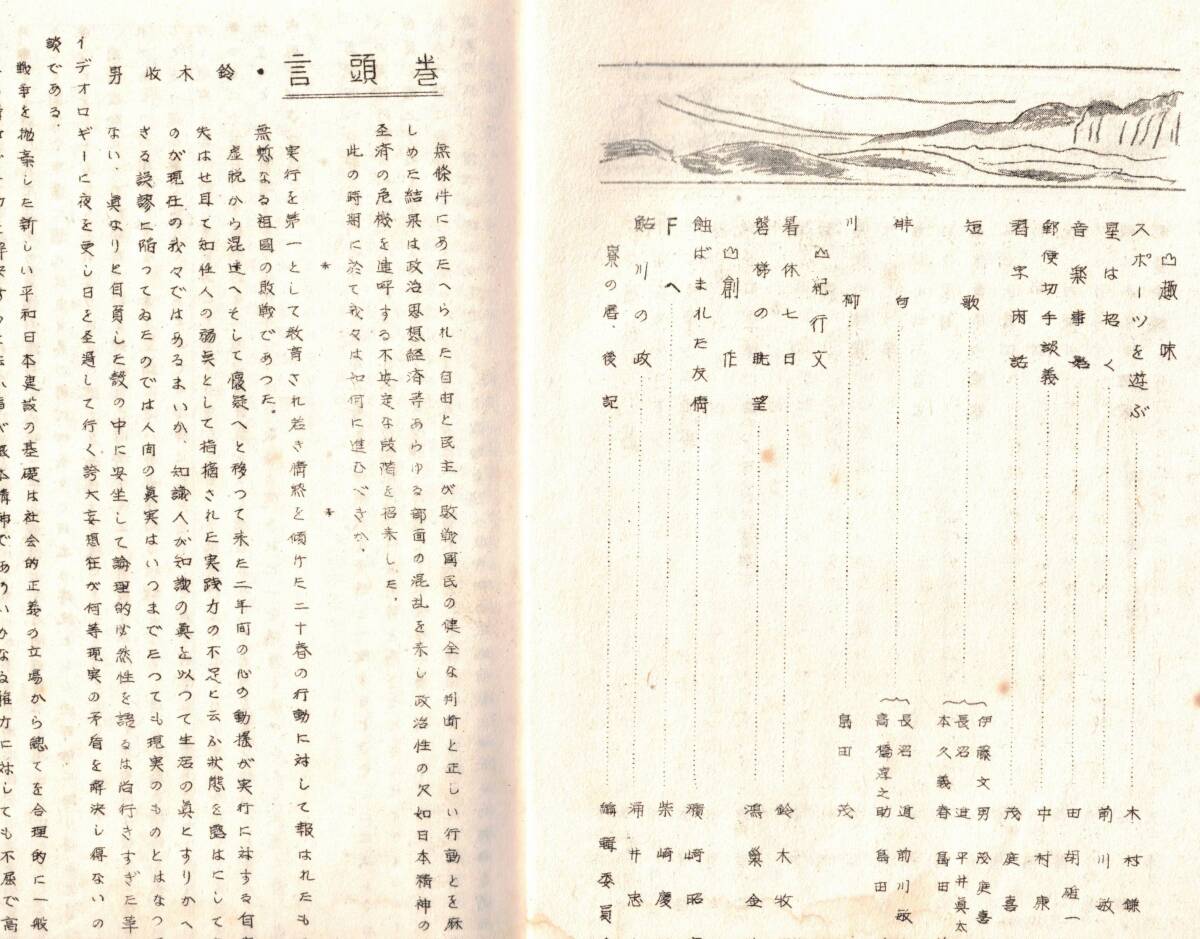 凶趣味
スポーツを遊ぶ 木村鎌
星は招く 前川敏
音楽事 田胡雄一
郵便切手談義 中村康
君子閑話 茂庭喜
短歌
伊藤文男 茂庭喜
長沼 平井眞太
本久義春 畠田
俳句
長沼道 前川敏
高橋淳之助 畠田
川柳 畠田 茂
凶紀行文
暑休七日 鈴木牧
磐梯の眺望 鴻巣金
凶創作
蝕ばまれた友情 濱崎昭
Fへ 柴崎慶
鮎川の政 涌井忠
寮の暦、後記 編輯委員
巻頭言
・鈴木牧男
無條件にあたへられた自由と民主が敗戦国民の健全な判断と正しい行動とを麻
しめた結果は政治思想経済等あらゆる部面の混乱を来し政治性の欠如日本精神の
圣済の危機を連呼する不安定な段階を招来した。
此の時期に於て我々は如何に進むべきか、
＊ ＊
実行を第一として教育され若き情熱を傾けた二十春の行動に対して報はれたも
無慙なる祖國の敗戦であつた。
虚脱から混迷へそして懐疑へと移つて来た二年间の心の動揺が実行に対する自
失はせ耳て知性人の弱点として指摘された実践力の不足と云ふ状態を露はにして
のが現在の我々ではあるまいか、知識人が知識の眞を以つて生活の眞とすりかへ
きる誤謬に陥つてゐたのでは人间の眞実はいつまでたつても現実のものとはなつ
ない、眞なりと自負した殻の中に安坐して論理的必然性を語るは尚行きすぎた革
イデオロギーに夜を更し日を圣過して行く誇大妄想狂が何等現実の矛盾を解決し得ないの
談である、
戦争を抛棄した新しい平和日本建設の基礎は社会的正義の立場から總てを合理的に一般